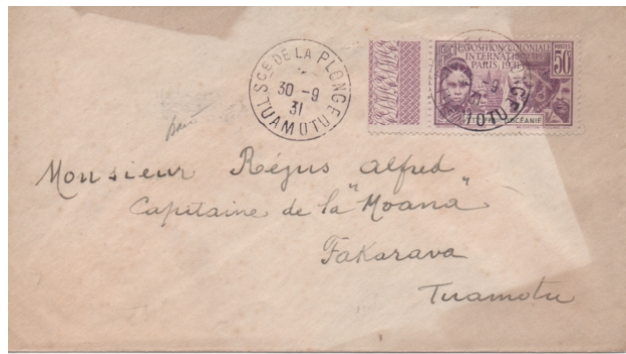 Sce DE LA PLONGE
30 -9
31
TUAMOTU
EXPOSITION COLONIALE
INTERNATIONALE
PARIS 1931
POSTES
50c
OCÉANIE
Monsieur Réjus Alfred
Capitaine de la "Moana"
Fakarava
Tuamotu